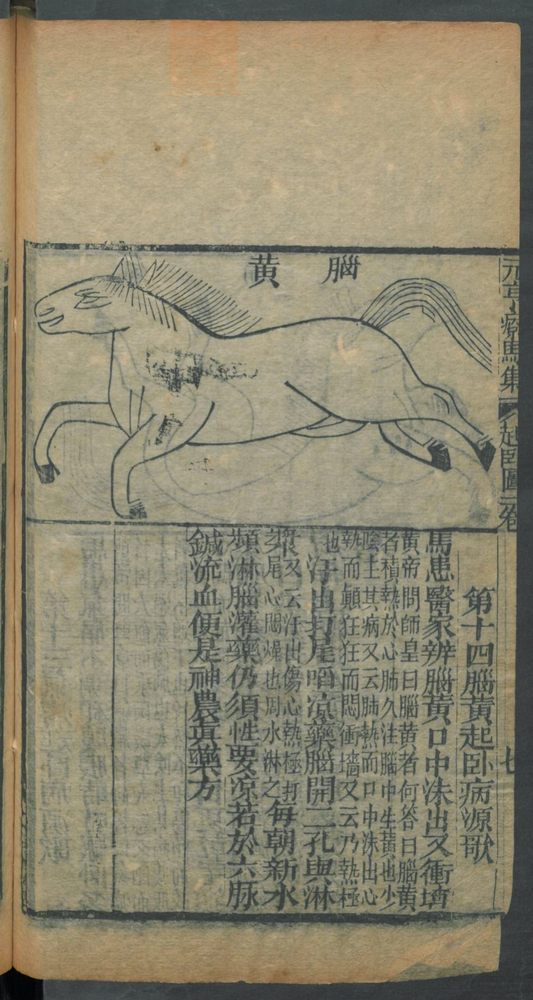 元亨療馬集
起臥圖二卷
七
腦黃
第十四腦黃起卧病源歌
馬患醫家辨腦黃口中沫出又衝墻
黃帝問師皇曰腦黃者何答曰腦黃
者積熱於心肺久注腦中生黃也少
陰主其病又云肺熱而口中沫出心
熱而顛狂狂而悶衝墻又云乃熱極
也汗出打尾喑凉藥腦開二孔與淋
漿又云汗出傷心熱極打
之尾心悶燥也用水淋之每朝新水
頻淋腦灌藥仍須性要凉若於六脉
鍼流血便是神農真藥方